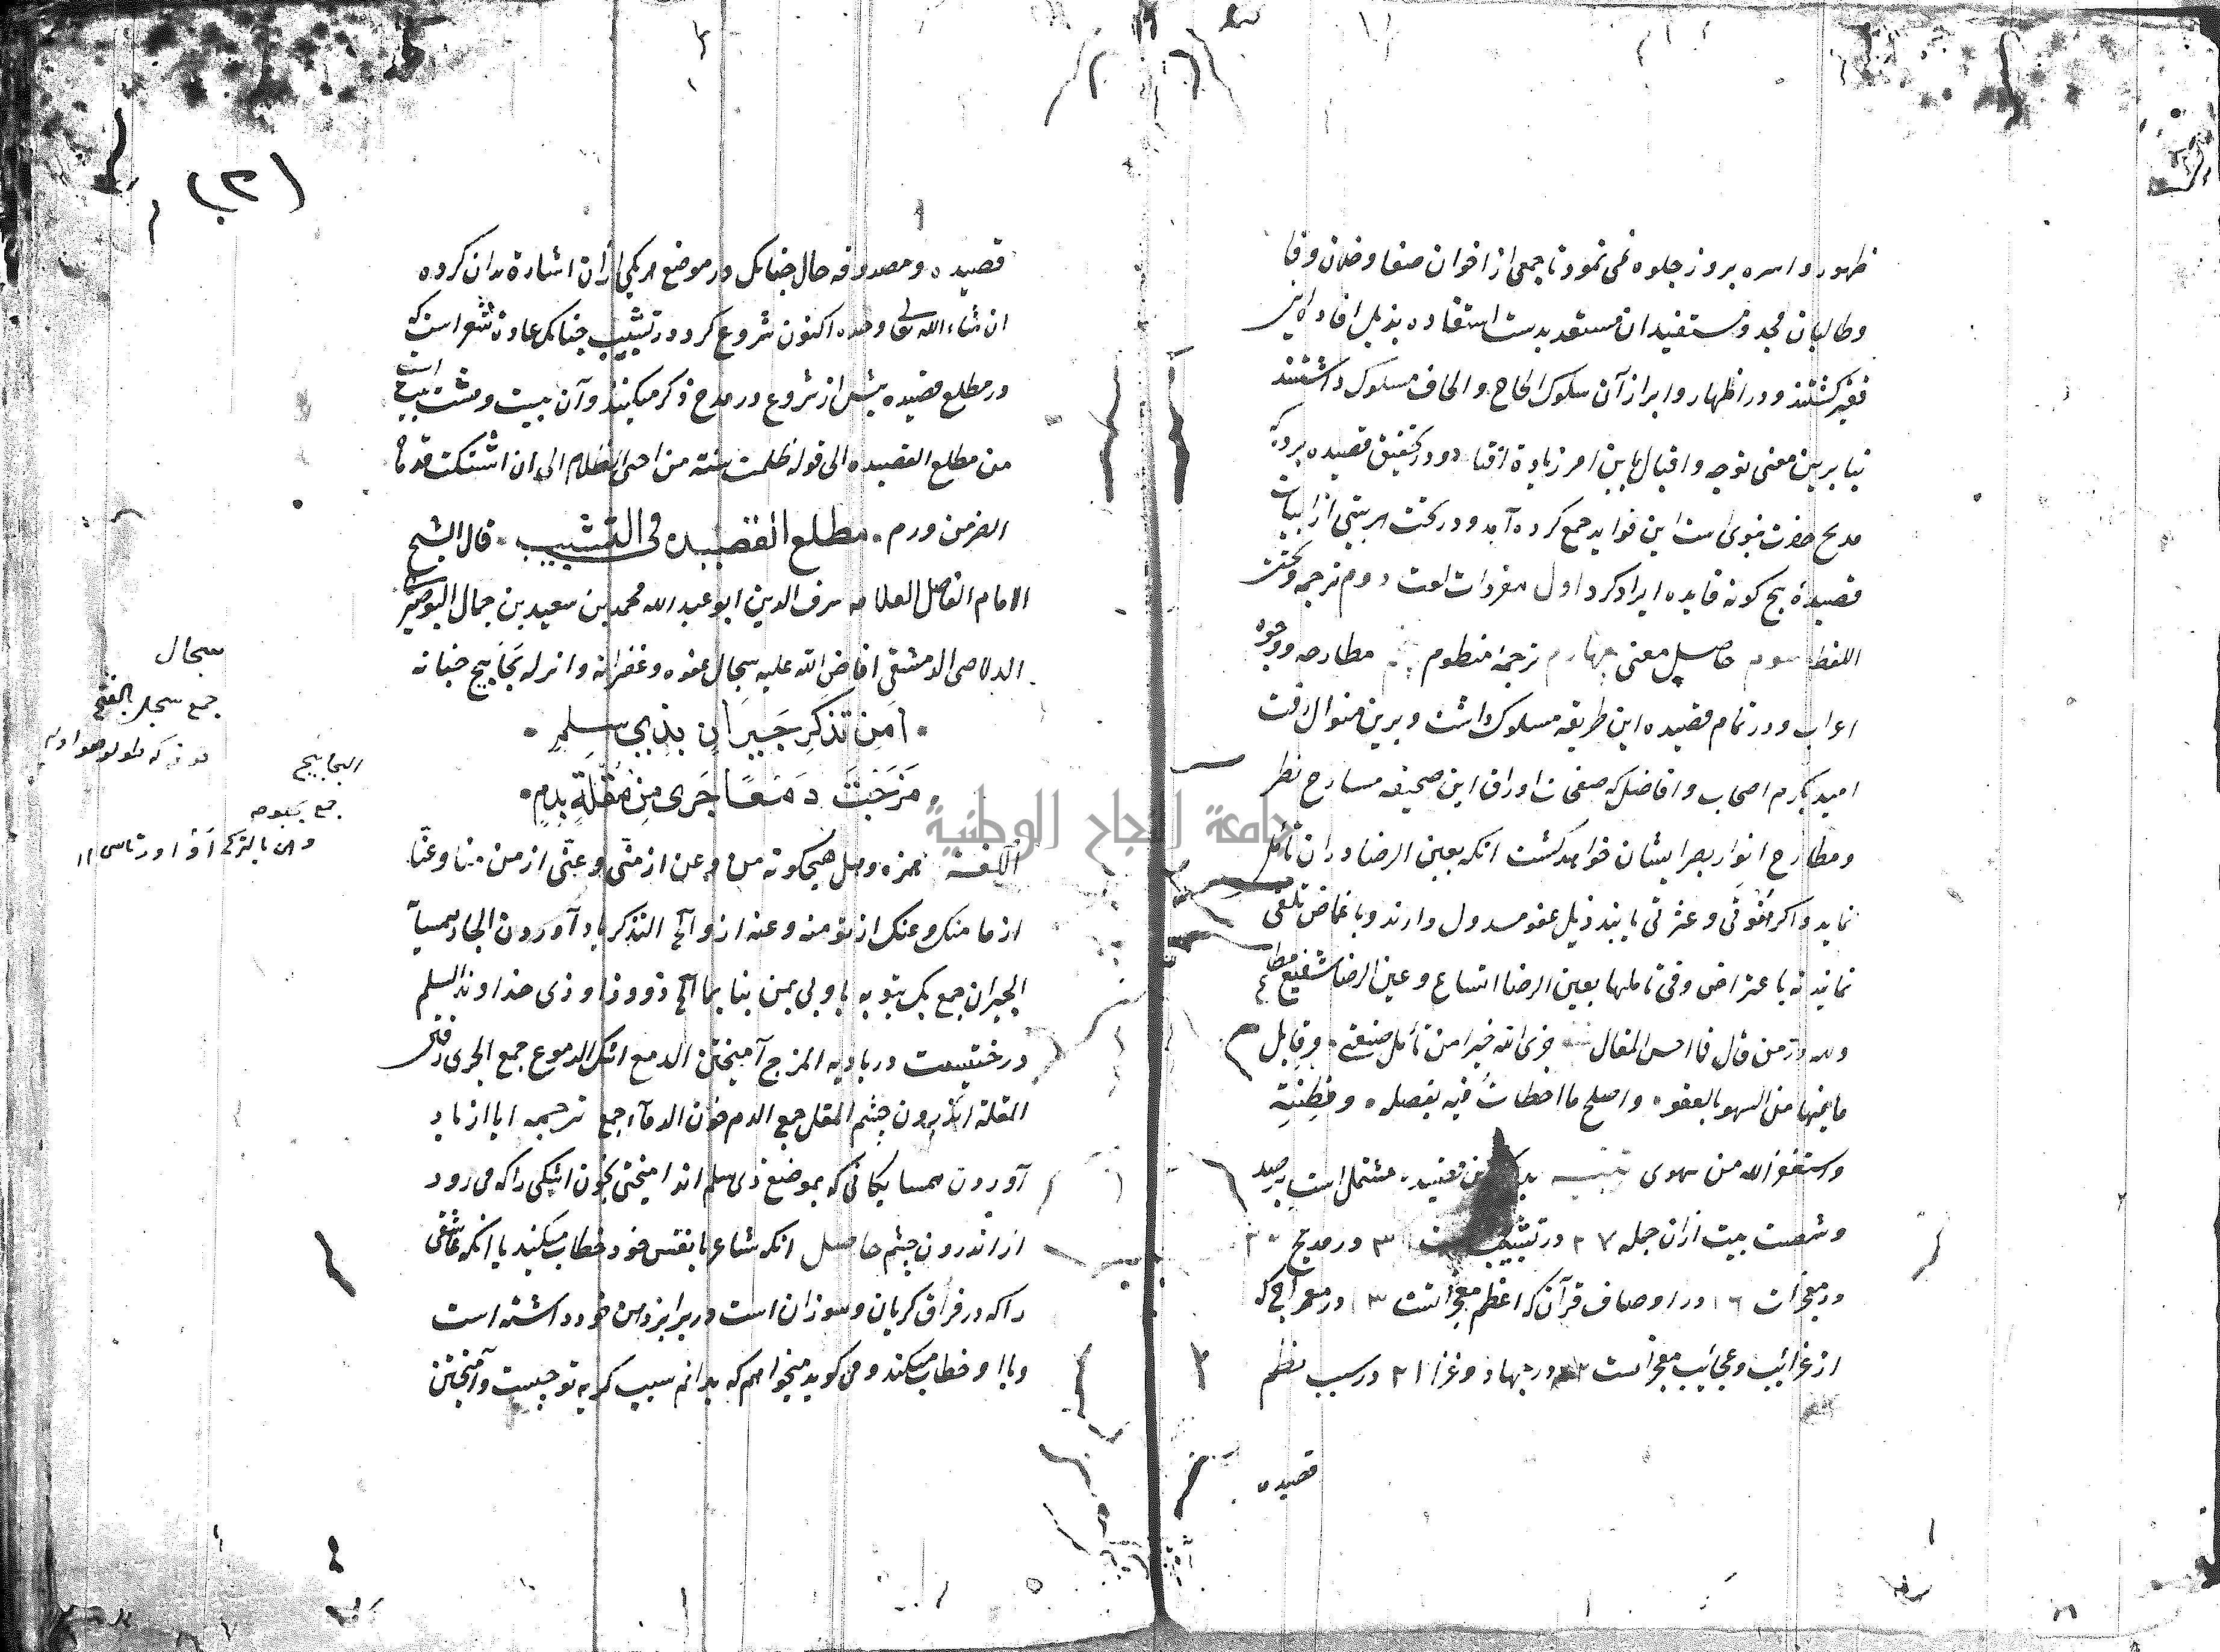 ظهور و اسره بروز جلوه نمی نمود تا جمعی از اخوان صفا و خلان وفا
و طالبان مجد و مستفیدان مستعد بدست استفاده بذیل افاده این
فقیر کشتند و در اظهار و ابراز آن سلوک الحاح و الحاف مسلوک داشتند
بنا برین معنی توجه و اقبال باین امر زیادة افتاد و در تحقیق قصیده برده که
مدیح حضرت نبوی است این فواید جمع کرده آمد و در تحت هر بیتی از ابیات
قصیدهٔ پنج کونه فایده ایراد کرد اول مفردات لغت دوم ترجمه تحت
اللفظ سوم حاصل معنی چهارم ترجمهٔ منظوم مطارحه و وجوه
اعراب و در تمام قصیده این طریقه مسلوک داشت و برین منوال رفت
امید بکرم اصحاب و افاضل که صفحات اوراق این صحیفه مسارح نظر
و مطارح انوار بصر ایشان خواهد کشت انکه بعین الرضا دران تأمل
نماید و اکر هفوتی و عثرتی یابند ذیل عفو مسدول دارند و باغماض تلقی
نمایند نه باعتراض وفی تاملها بعین الرضا اتساع وعین الرضا شفیع مطاع
ولله در من قال فاحسن المقال جزی الله خیرا من تأمل صنعتی وقابل
ما فیها من السهو بالعفو واصلح ما اخطات فیه بفضله وفطنته
واستغفر الله من سهوی تنبیه مشتمل است بر صد
و شصت بیت ازان جمله در تشبیب در مدیح
در معجزات ١٦ در اوصاف قرآن که اعظم معجزاتست ١٣ در معراج که
از غرائب و عجائب معجزاتست در جهاد و غزا ٢١ در سبب نظم
قصیده
(٣)
قصیده و مصدوقه حال چنانک در موضع هر یکی ازان اشارة بدان کرده
ان شاء الله تعالی وحده اکنون شروع کرد در تشبیب چنانک عادة شعراست که
در مطلع قصیده پیش از شروع در مدح ذکر میکنند و آن بیست و هشت بیت است
من مطلع القصیده الی قوله ظلمت سنة من احیی الظلام الی ان اشتکت قدماه
الضر من ورم مطلع القصیده فی التشبیب قال الشیخ
الامام الفاضل العلامه شرف الدین ابو عبد الله محمد بن سعید بن جمال البوصیری
الدلاصی الدمشقی افاض الله علیه سجال عفوه وغفرانه وانزله بحابیح جنانه
أَمِنْ تَذَكُّرِ جِيرَانٍ بِذِي سَلَمِ
مَزَجْتَ دَمْعًا جَرَى مِنْ مُقْلَةٍ بِدَمِ
اللغة همزه وهل هیچکونه من وعن از منّی وعنّی از من منا وعنّا
از ما منک وعنک از تو منه وعنه از و التذکر یاد آوردن الجار همسایه
الجیران جمع بک بتو به باو بی بمن بنا بما ذو وذا وذی خداوند السلم
درختیست در بادیه المزج آمیختن الدمع اشک الدموع جمع الجری رفتن
المقلة اندرون چشم المقل جمع الدم خون الدماء جمع ترجمه ایا از یاد
آوردن همسایکانی که بموضع ذی سلم اند امیختی بخون اشکی را که می رود
از اندرون چشم حاصل انکه شاعر با نفس خود خطاب میکند یا انکه عاشقی
را که در فراق کریان و سوزان است در برابر ذهن خود داشته است
و با او خطاب میکند و می کوید میخواهم که بدانم سبب کریه تو چیست و آمیختن
سجال
جمع سجل بالفتح
البحابیح
جمع بحبوحه
جامعة النجاح الوطنية